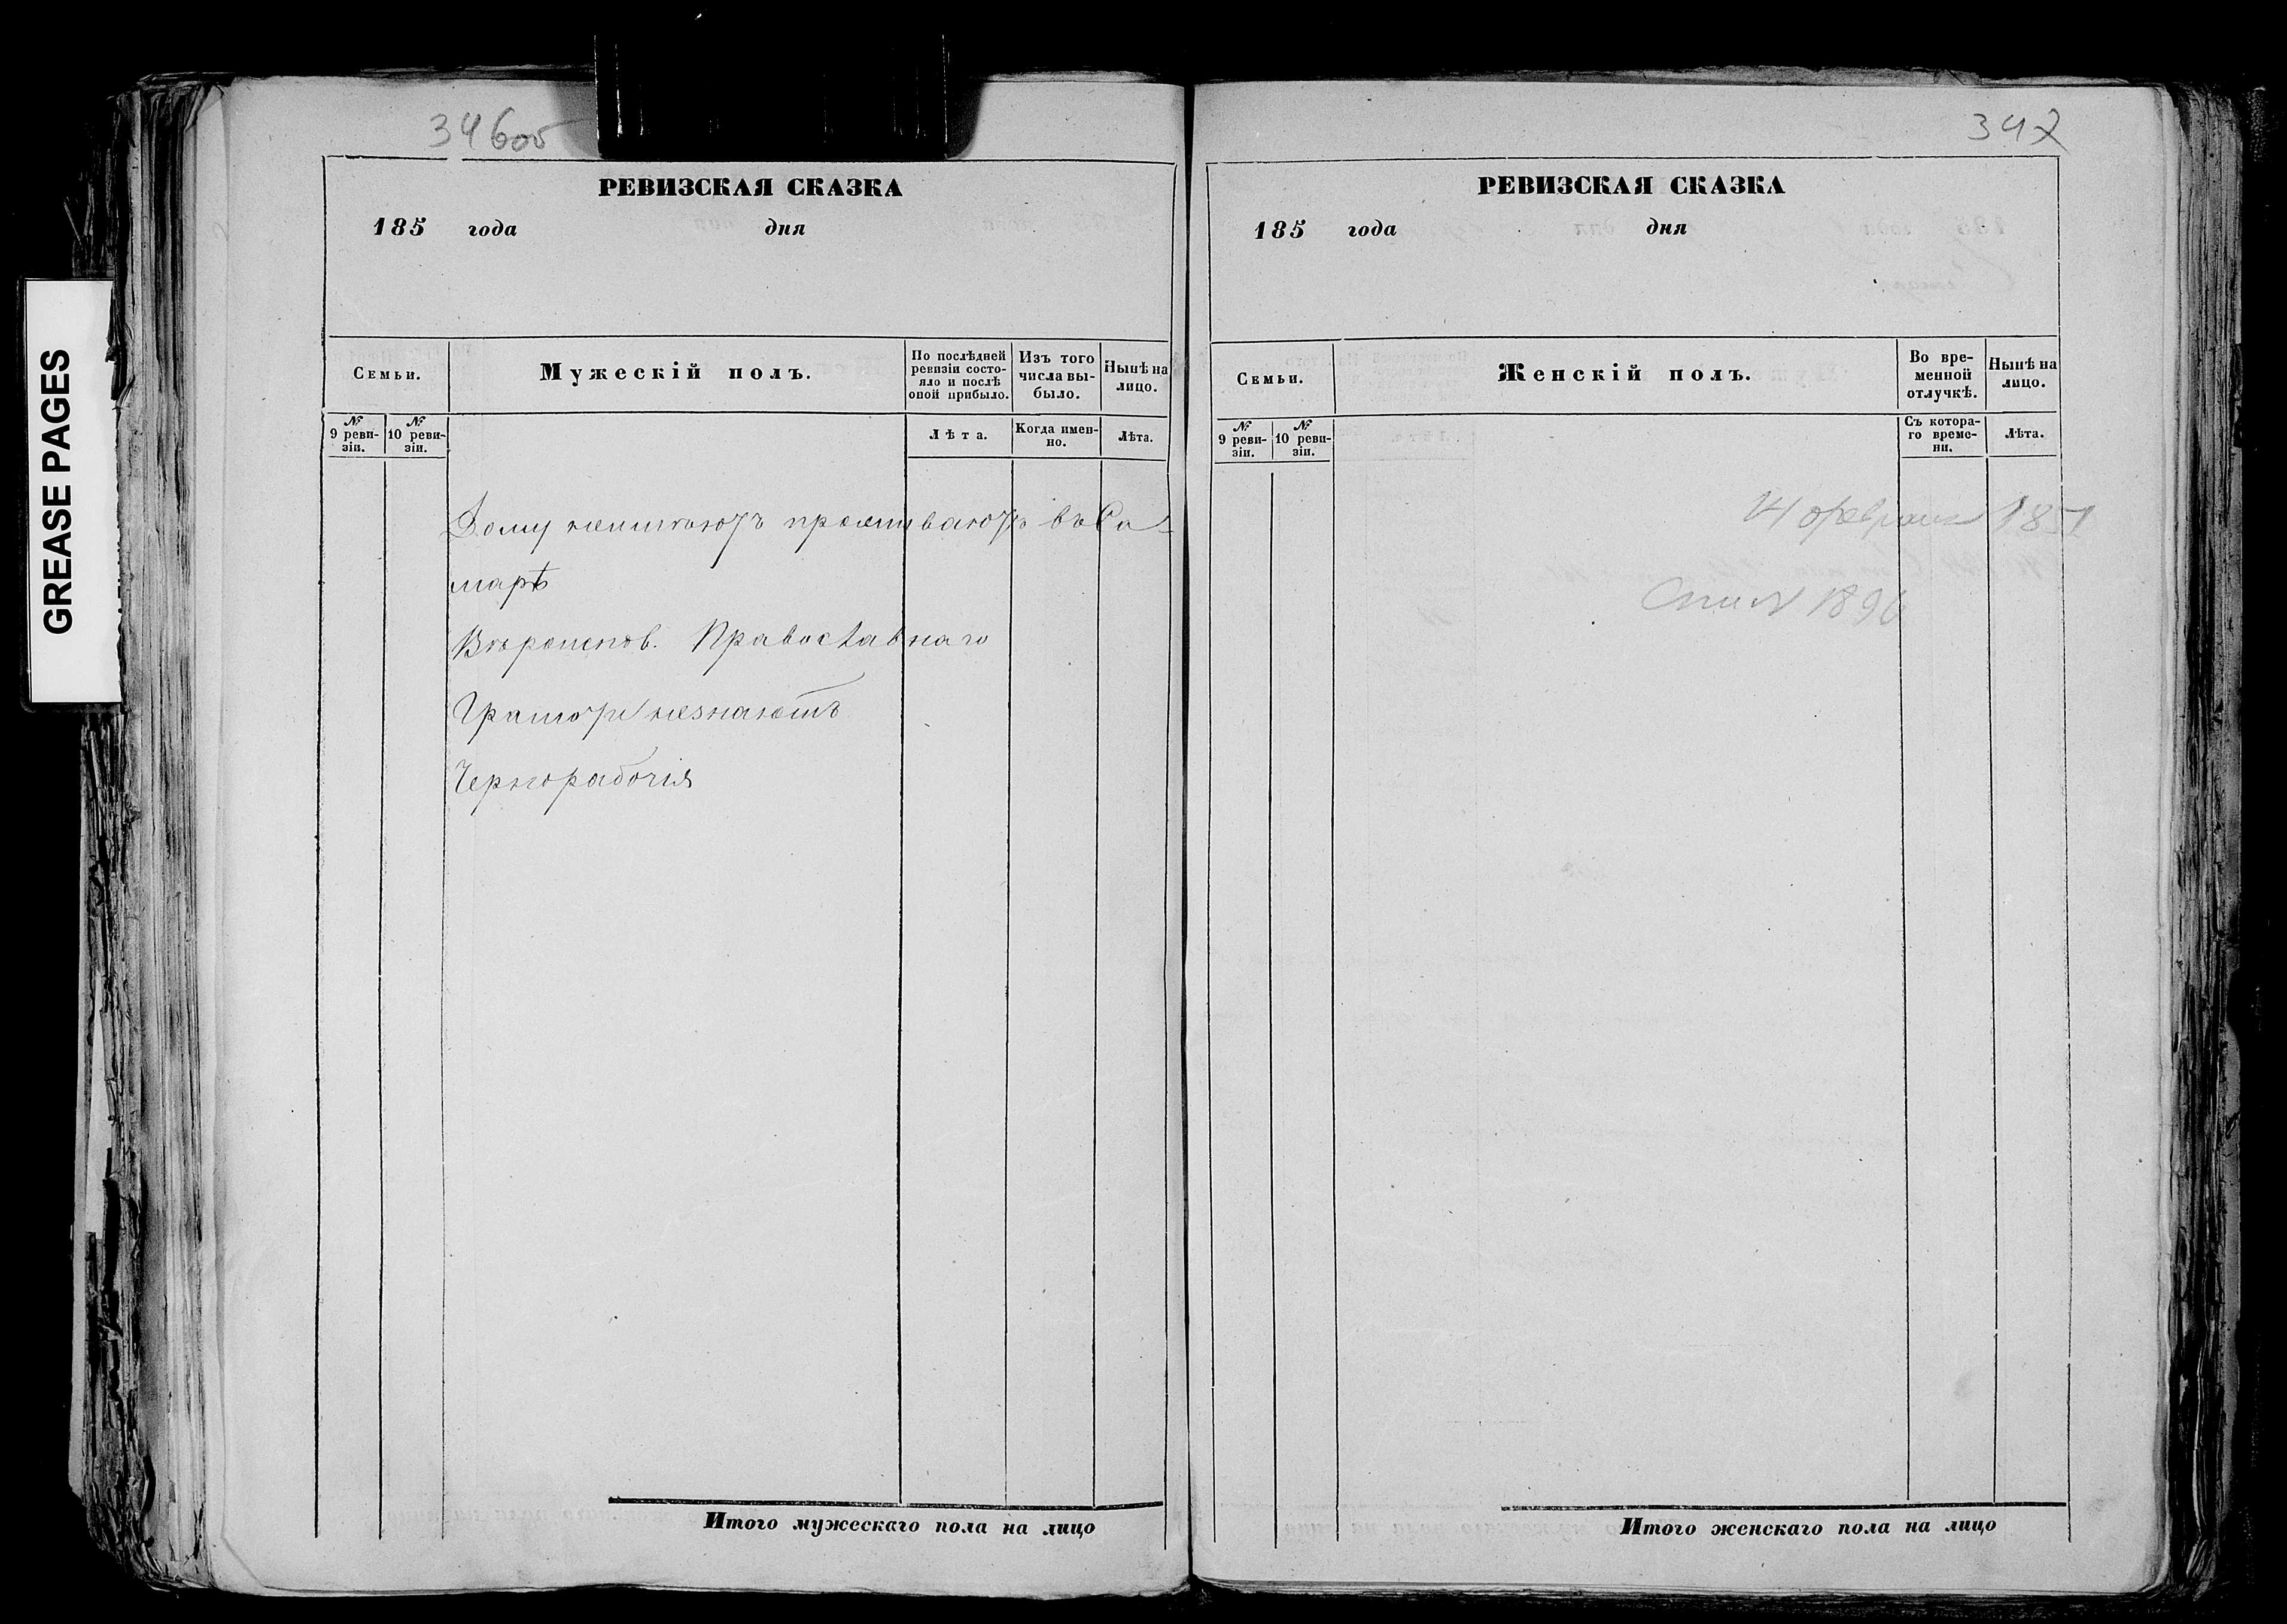 GREASE PAGES
346об
РЕВИЗСКАЯ СКАЗКА
185 года дня
Семьи.
Мужескій полъ.
По послѣдней ревизіи состояло и послѣ оной прибыло.
Изъ того числа выбыло.
Нынѣ на лицо.
№ 9 ревизіи.
№ 10 ревизіи.
Лѣта.
Когда именно.
Лѣта.
Дому неимѣютъ проживаютъ въ Са-
марѣ
Вѣроисповѣ. Православнаго
Грамоти незнаютъ
Чернорабочія
Итого мужескаго пола на лицо
347
РЕВИЗСКАЯ СКАЗКА
185 года дня
Семьи.
Женскій полъ.
Во временной отлучкѣ.
Нынѣ на лицо.
№ 9 ревизіи.
№ 10 ревизіи.
Съ котораго времени.
Лѣта.
14 февраля 1851
1896
Итого женскаго пола на лицо